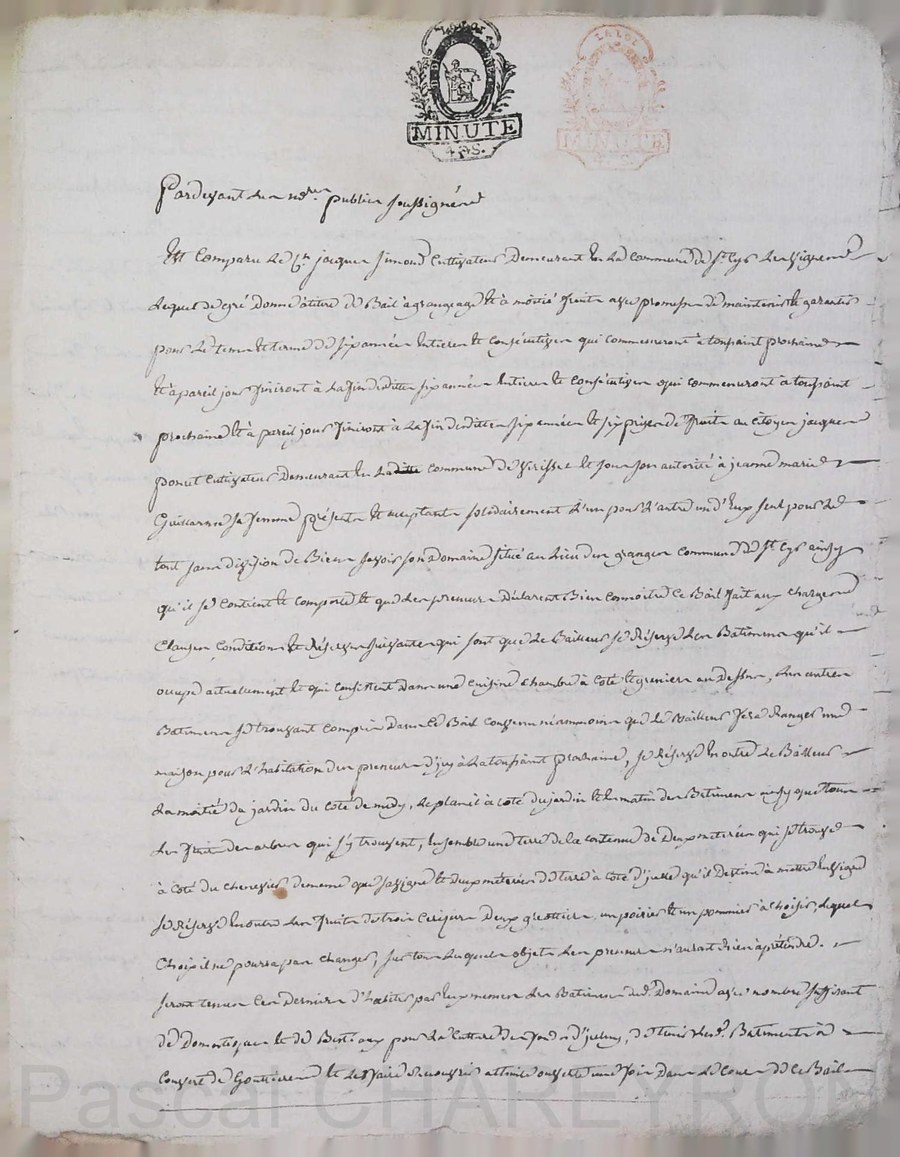 LA LOI
MINUTE
MINUTE
4 . S.
Pardevant les nores publics soussignés
Est Comparu le Cn jacques Simond Cultivateur Demeurant En la Commune de St Cyr les vignes
Lequel de gré Donne à titre de Bail à grangeage Et à moitié fruits avec promesse de maintenir Et garantir
pour le tems Et terme de six années Entieres Et Consécutives qui commenceront à tousaint prochaine
Et à pareil jour finiront à la fin desdittes six années Entieres Et Consécutives qui commenceront a tousaint
prochaine Et à pareil jour finiront à la fin desdittes six années Et six prises de fruits au Citoyen jacques
poncet Cultivateur Demeurant En la ditte commune de Et sous son autorité à jeanne marie
sa femme présents Et acceptants solidairement L'un pour L'autre un d'Eux seul pour le
tout sans division de Biens savoir son domaine situé au lieu des granges commune de St Cyr ainsy
qu'il se Contient Et Comporte Et que les preneurs Déclarent Bien connoitre Ce Bail fait aux charges
Clauses Conditions Et Réserves suivantes qui sont que Le Bailleur se Réserve les Batimens qu'il
occupe actuellement Et qui consistent Dans une Cuisine chambre à Coté Et grenier au Dessus, Les autres
Batimens se trouvant Compris Dans Ce Bail Convenu néammoins que Le Bailleur fera Ranger une
maison pour L'habitation des preneurs d'icy à la tousaint prochaine, se Réserve En outre Le Bailleur
La moitié du jardin du Coté de midy, à coté du jardin Et Le matin des Batimens ainsy que tous
les fruits des arbres qui s'y trouvent, Ensemble une terre de la contenue de Deux meterées qui se trouve
à Coté du chenevier de meme que sa vigne Et deux meterées de terre à Coté d'jcelle qu'il Destine à mettre En vigne
se Réserve En outre Les fruits de trois Cerisiers Deux , un poirier Et un pommier à choisir, Lequel
Choix il ne pourra pas changer, sur tous lesquels objets Les preneurs n'auront Rien à prétendre.
seront tenus Ces Derniers d'habiter par Eux memes Les Batimens dud. Domaine avec nombre suffisant
de Domestiques Et de Bestiaux pour La Culture des fonds d'jceluy, de tenir Lesd. Batimens à
Couvert de Goutieres Et Les faire Recouvrir à une fois Dans Le Cours de Ce Bail
Pascal CHAREYRON